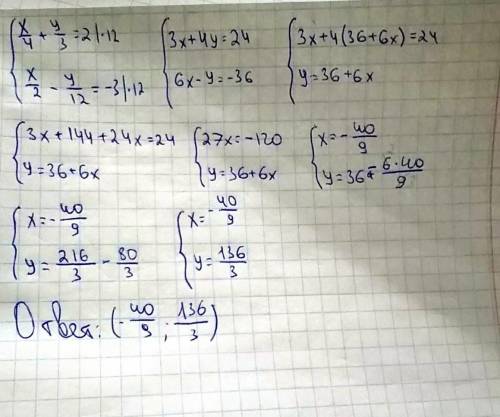 x/4 + y/3 = 2 | · 12
x/2 - y/12 = -3 | · 12
3x+4y=24
6x-y=-36
3x+4(36+6x)=24
y=36+6x
3x+144+24x=24
y=36+6x
27x=-120
y=36+6x
x=-40/9
y=36-6·40/9
x=-40/9
y=216/3-80/3
x=-40/9
y=136/3
Ответ: (-40/9; 136/3)